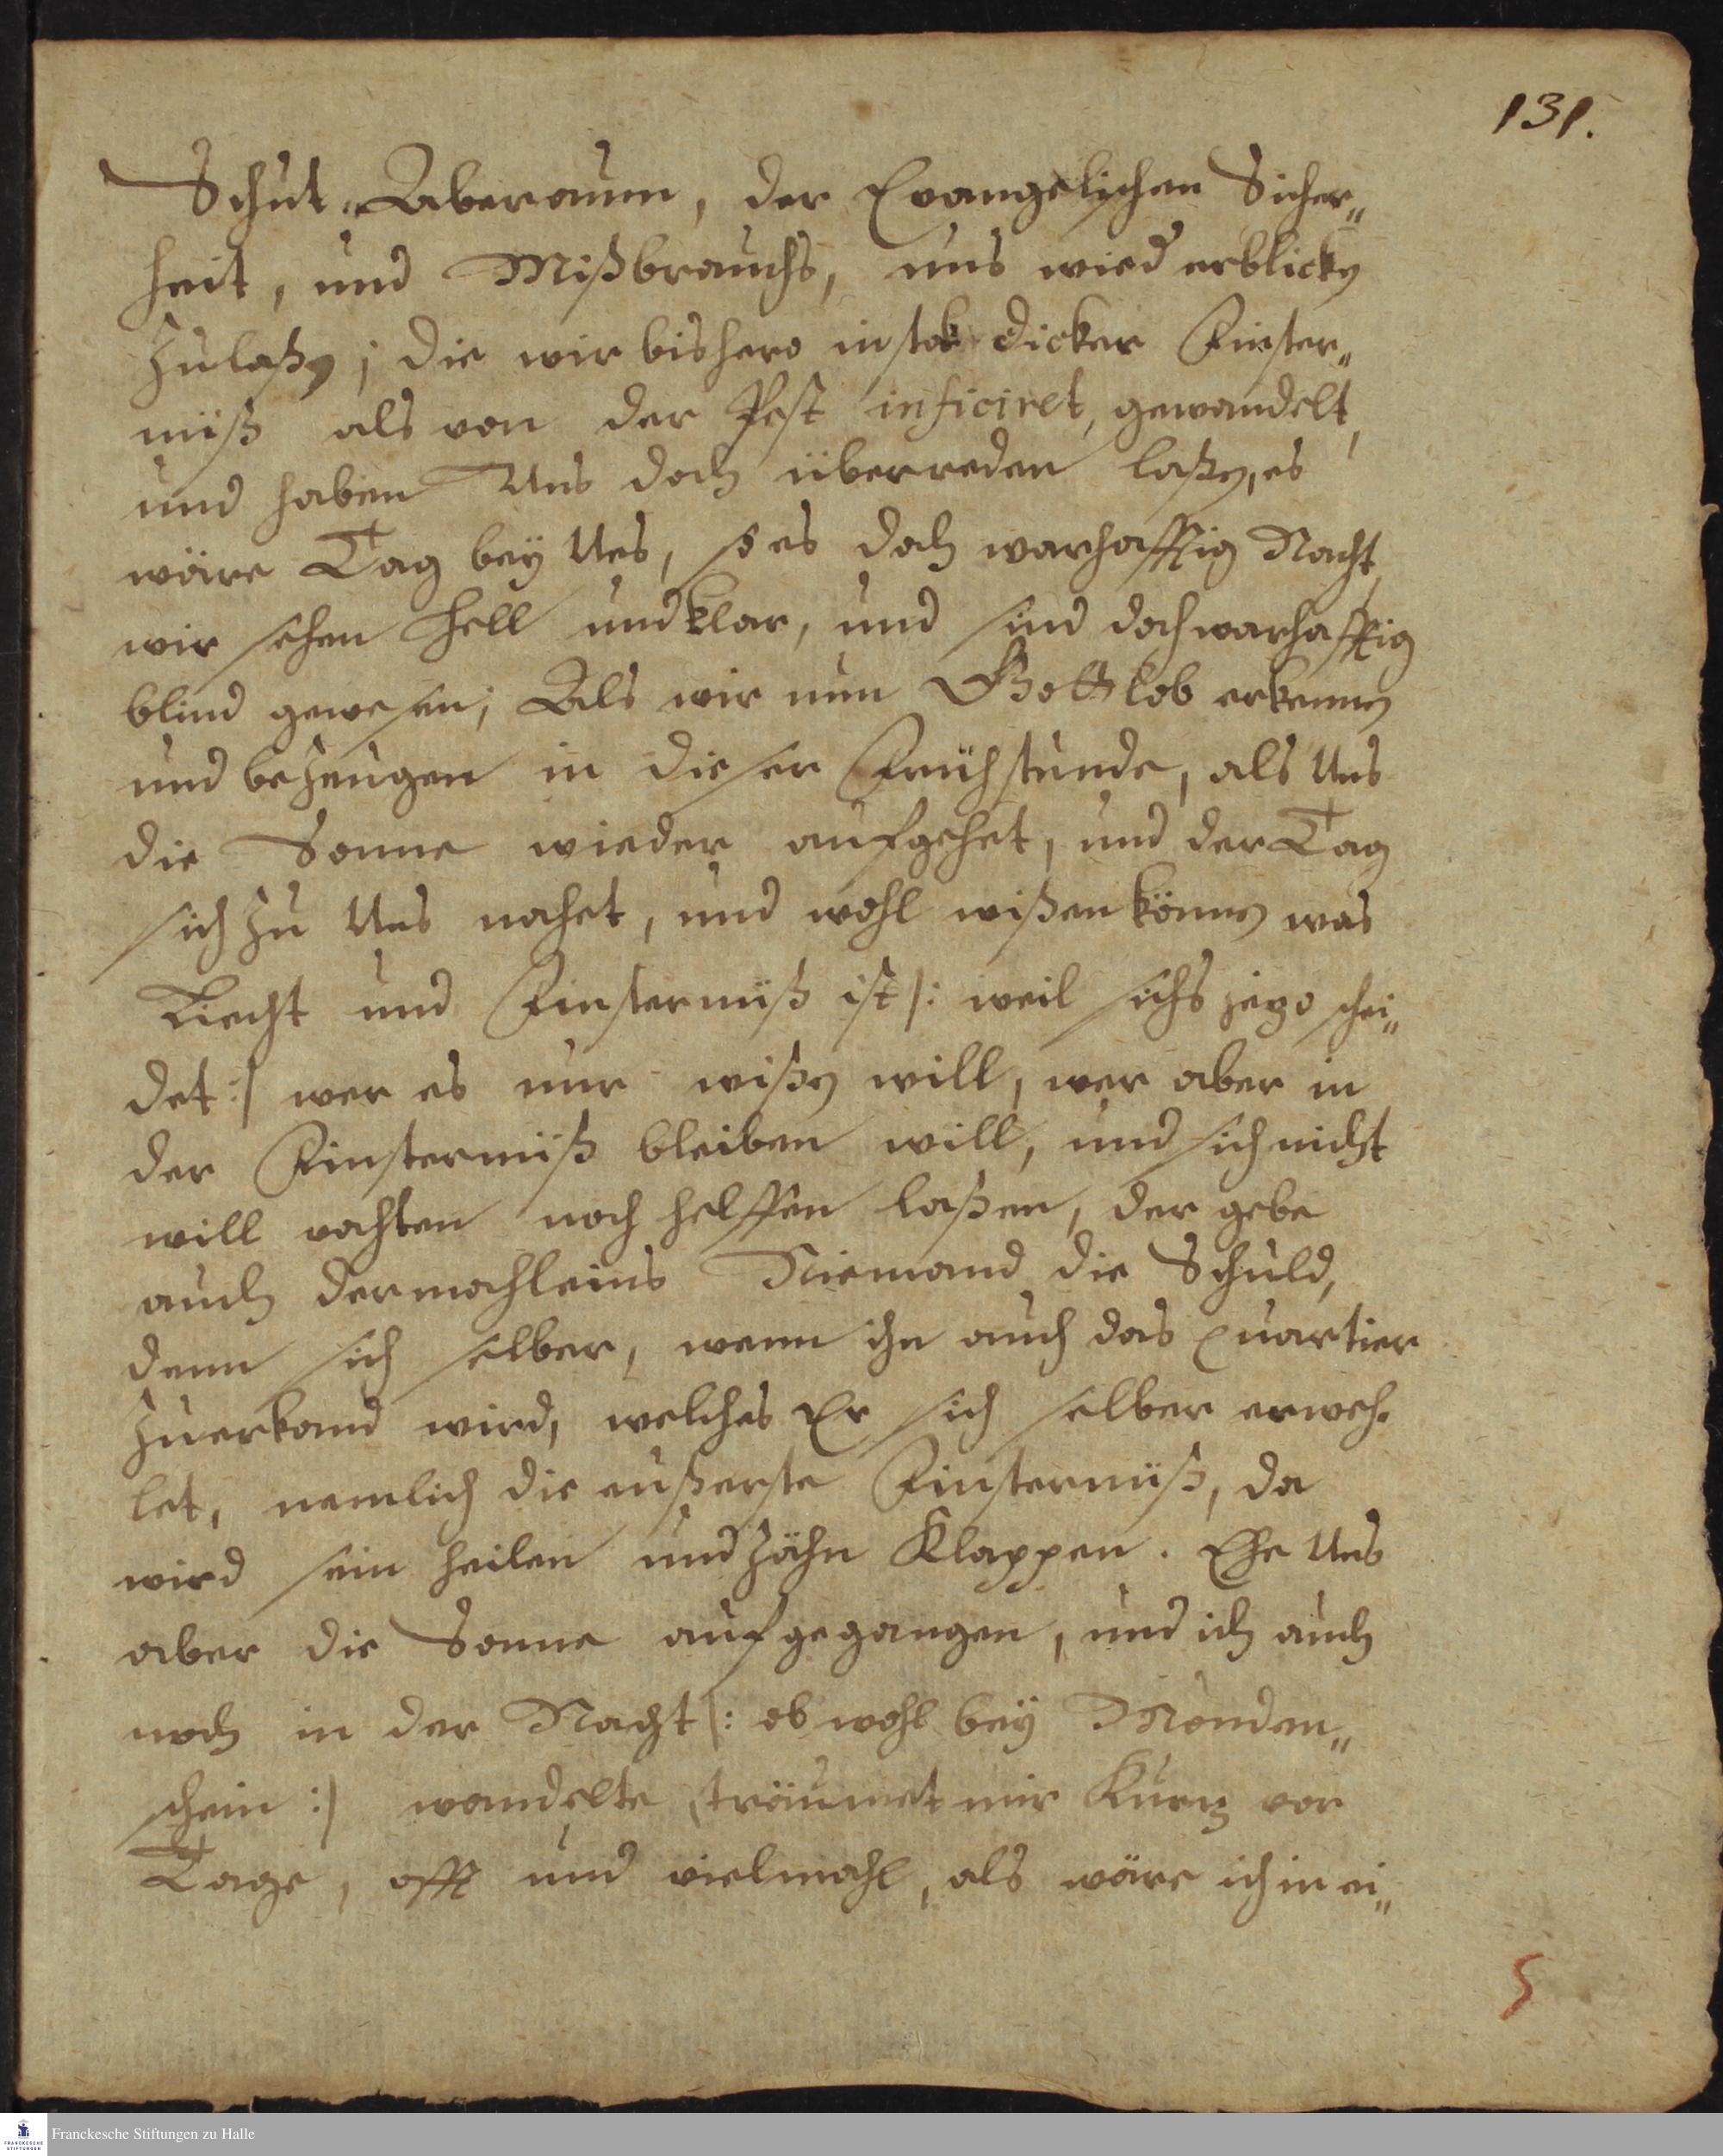 131.
Schut-Aberaum, der Evangelischen Sicher„
heit, und Mißbrauchs, uns wied erblicken
zulaßen; die wir bishero in stok dicker Finster„
nüß als von der Pest inficiret, gewandelt,
und haben Uns doch überreden laßen, es
wäre Tag bey Uns, so es doch warhafftig Nacht,
wir sehen hell und klar, und sind doch warhafftig
blind gewesen; Als wir nun Gott lob erkennen
und bezeugen in dieser Frühstunde, als Uns
die Sonne wieder aufgehet, und der Tag
sich zu Uns nahet, und wohl wißen können was
Liecht und Finsternüß ist /: weil sichs jezo schei„
det :/ wer es nur wißen will, wer aber in
der Finsternüß bleiben will, und sich nicht
will rahten noch helffen laßen, der gebe
auch dermahleins Niemand die Schuld,
denn sich selber, wenn ihn auch das Quartier
zuerkand wird, welches Er sich selber erweh-
let, nemlich die eußerste Finsternüß, da
wird sein heilen und Zähn Klappen. Ehe Uns
aber die Sonne aufgegangen, und ich auch
noch in der Nacht /: ob wohl bey Monden„
schein :/ wandelte, träumet mir Kurtz vor
Tage, offt und vielmahl, als wäre ich in ei„
5
Franckesche Stiftungen zu Halle
FRANCKESCHE
STIFTUNGEN